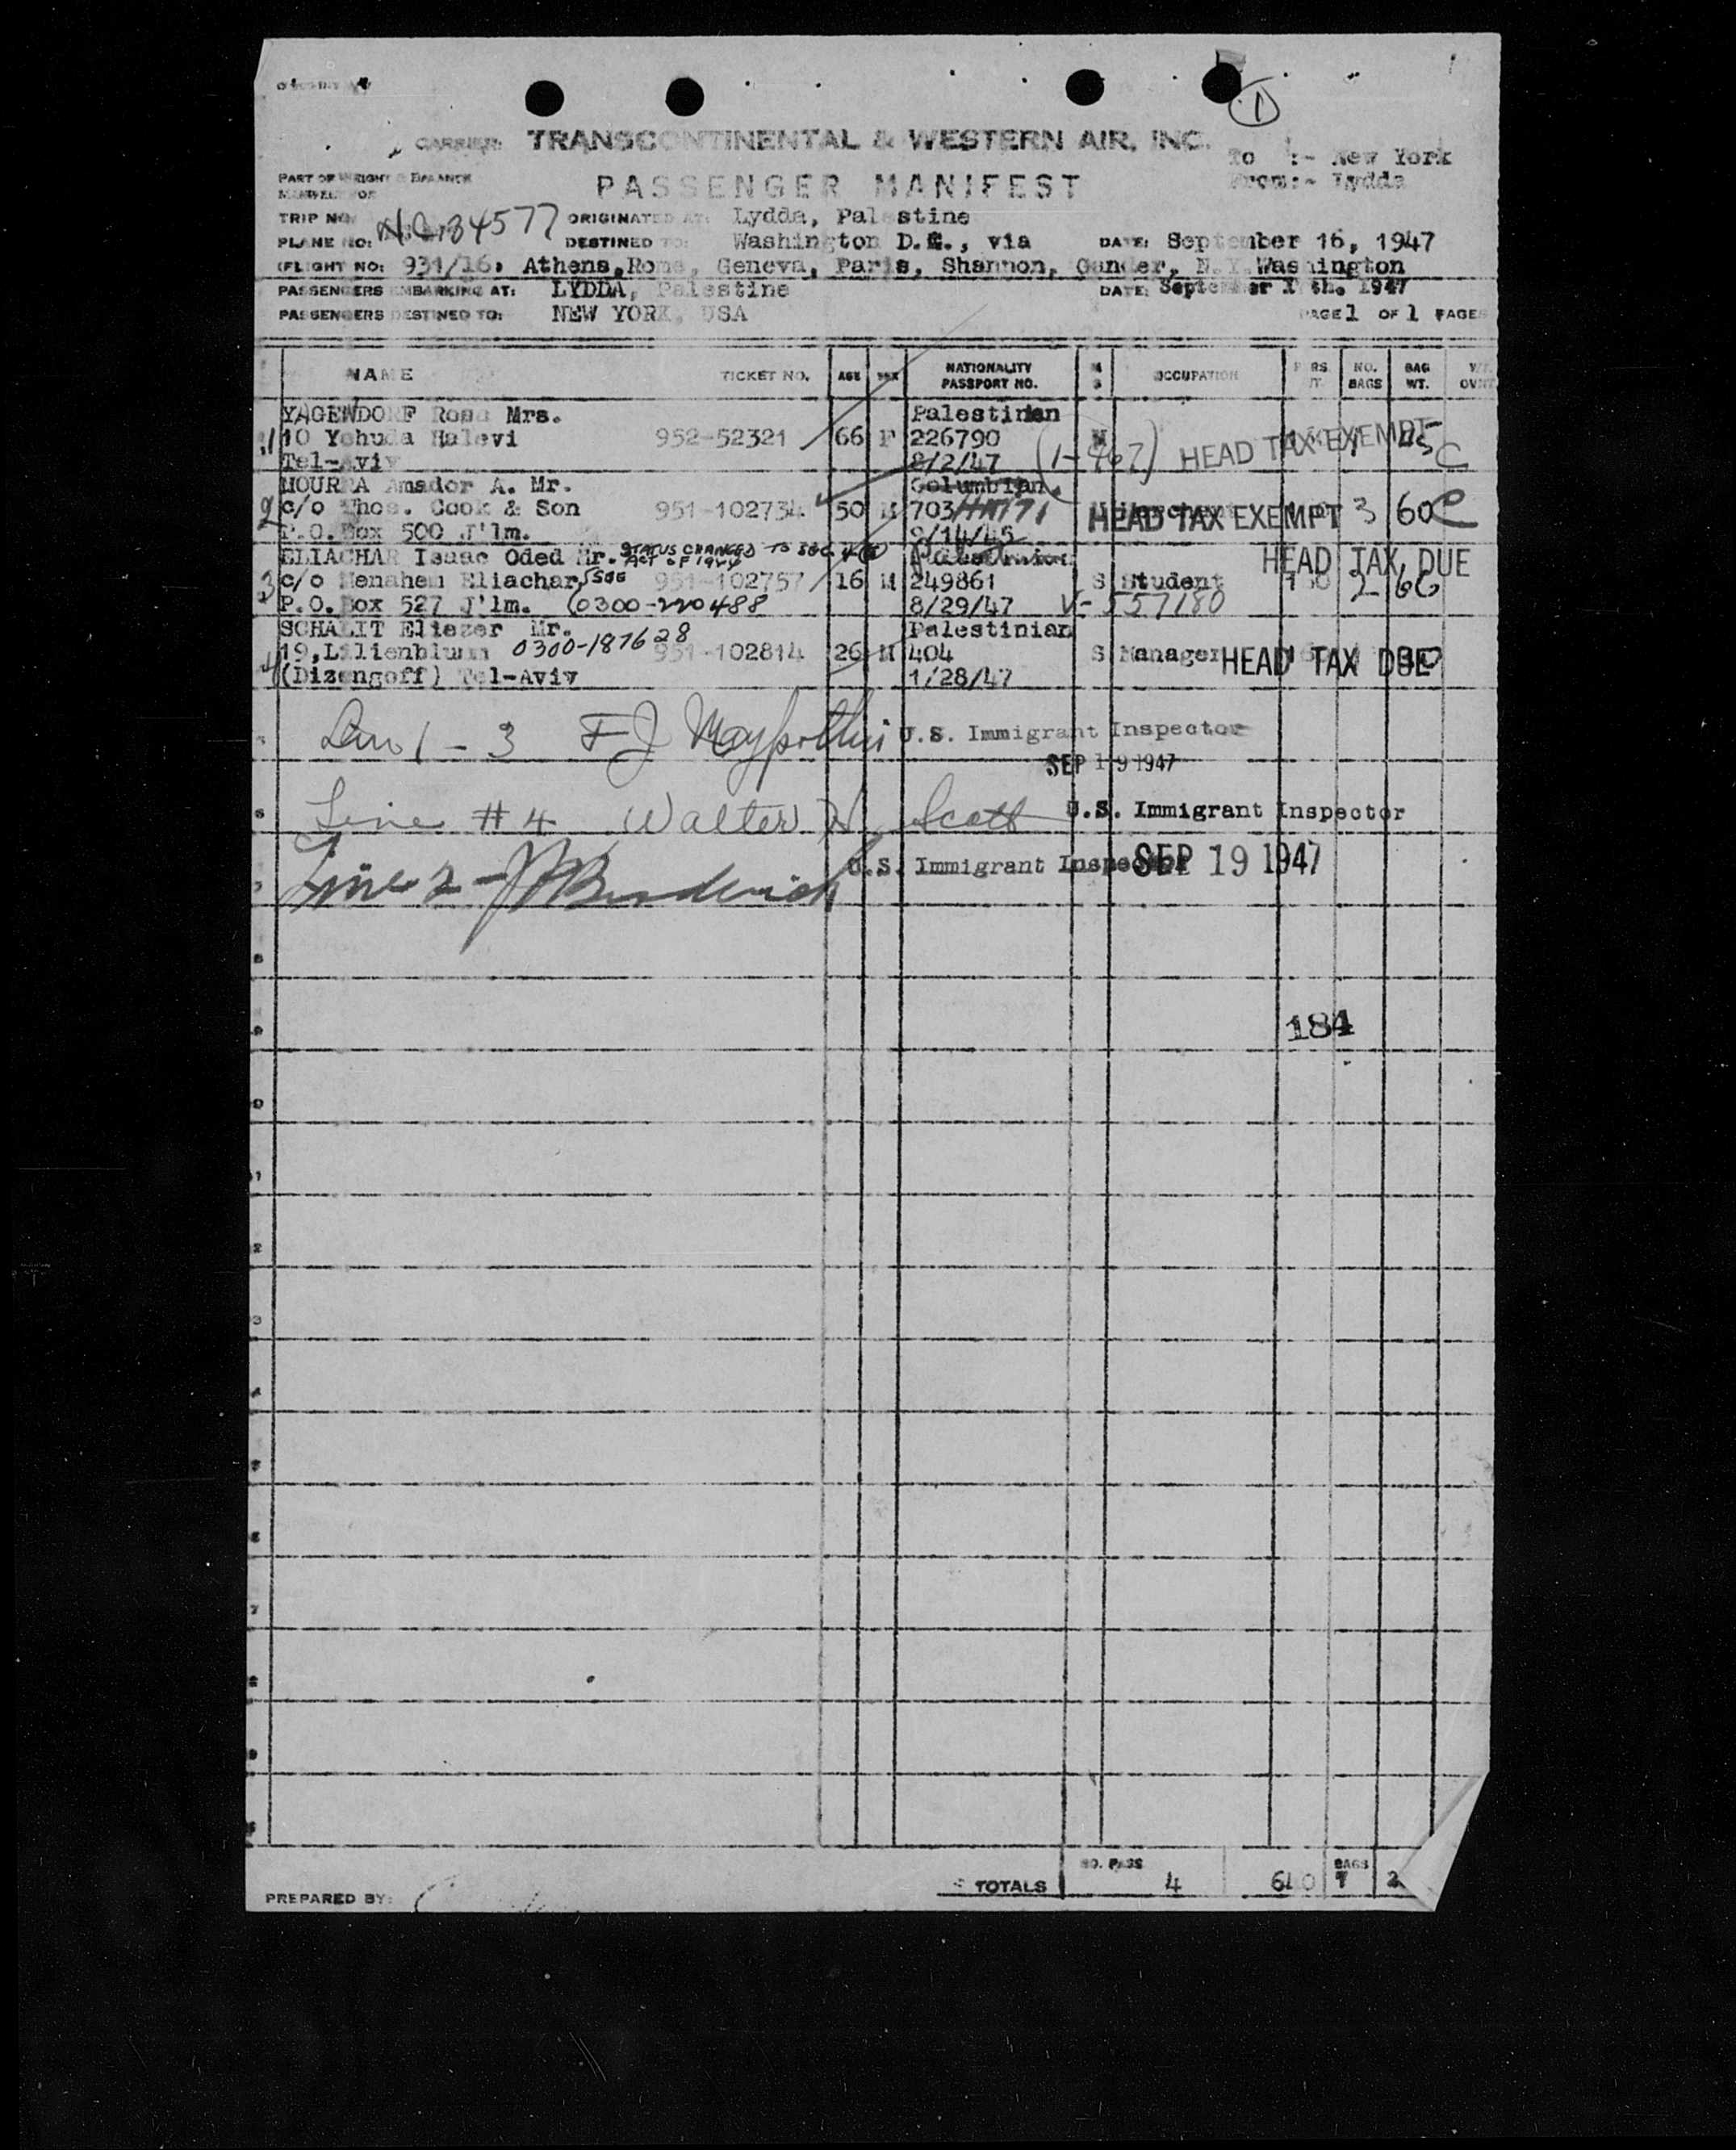 1
CARRIER: TRANSCONTINENTAL & WESTERN AIR, INC.
To :- New York
From:- Lydda
PART OF WEIGHT & BALANCE
PASSENGER MANIFEST
TRIP NO. ORIGINATED AT: Lydda, Palestine
PLANE NO: NC 34577 DESTINED TO: Washington D.C., via DATE: September 16, 1947
(FLIGHT NO: 931/16) Athens, Rome, Geneva, Paris, Shannon, Gander, N.Y. Washington
PASSENGERS EMBARKING AT: LYDDA, Palestine DATE: September th. 1947
PASSENGERS DESTINED TO: NEW YORK, USA PAGE 1 OF 1 PAGES
NAME TICKET NO. AGE SEX NATIONALITY PASSPORT NO. M S OCCUPATION PERS. WT. NO. BAGS BAG WT. WT. OVWT
YAGENDORF Rosa Mrs. Palestinian
1 10 Yehuda Halevi 952-52321 66 F 226790 M HEAD TAX EXEMPT 45 C
Tel-Aviv 8/2/47
MOURRA Amador A. Mr. Columbian
2 c/o Thos. Cook & Son 951-102734 50 M 703 HEAD TAX EXEMPT 3 60 C
P.O.Box 500 J'lm. 9/14/45
ELIACHAR Isaac Oded Mr. STATUS CHANGED TO SEC 4 ACT OF 1924 Palestinian HEAD TAX DUE
3 c/o Menahem Eliachar, See 951-102757 16 M 249861 S Student 2 66
P.O.Box 527 J'lm. 0300-220488 8/29/47 V-557180
SCHALIT Eliezer Mr. Palestinian
4 19, Lilienblum 0300-187628 951-102814 26 M 404 S Manager HEAD TAX DUE
(Dizengoff) Tel-Aviv 1/28/47
1 - 3 F J U.S. Immigrant Inspector
SEP 19 1947
Line # 4 Walter H. Scott U.S. Immigrant Inspector
Line 2 - U.S. Immigrant Inspector SEP 19 1947
184
TOTALS NO. PASS 4 640 BAGS 7 2
PREPARED BY: